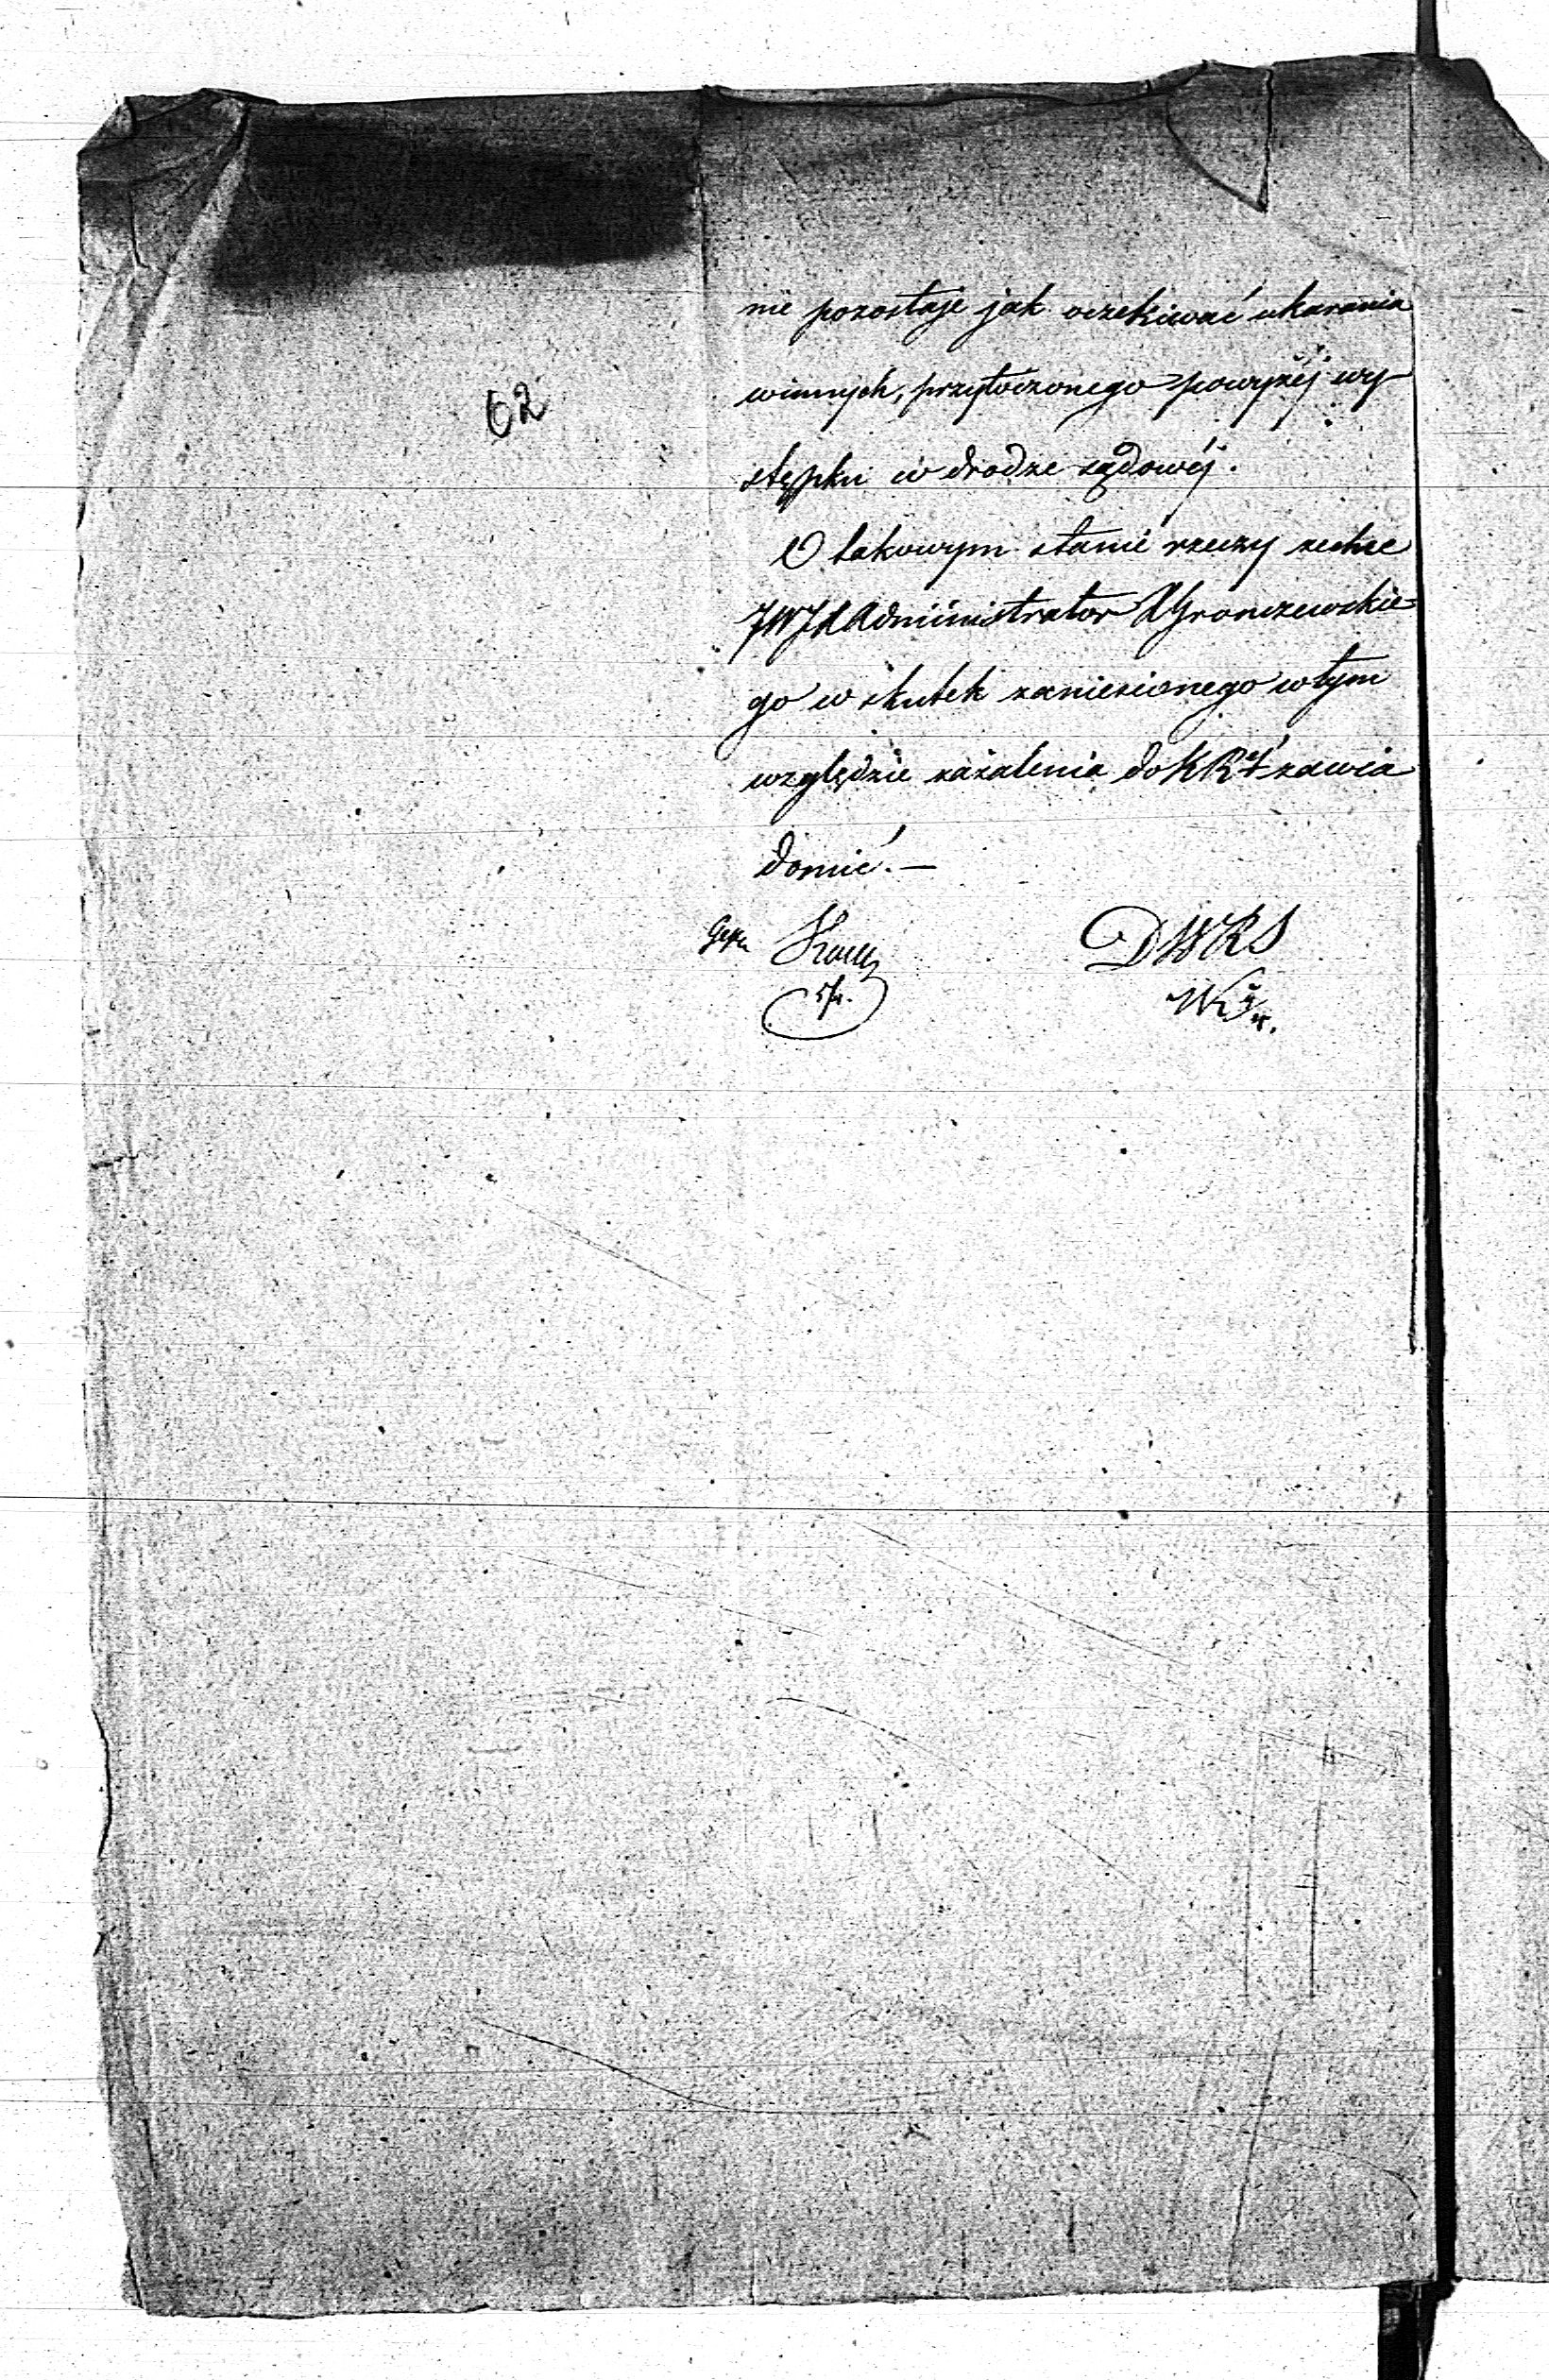 62
nie pozostaje jak oczekiwać ukarania
winnych, przytoczonego powyżéj wy-
stępku w drodze sądowéj.
O takowym stanie rzeczy zechce
JWJX Administrator XGronczewskie-
go w skutek zaniesionego w tym
względzie zażalenia do KRz zawia
domić. —
DWRS